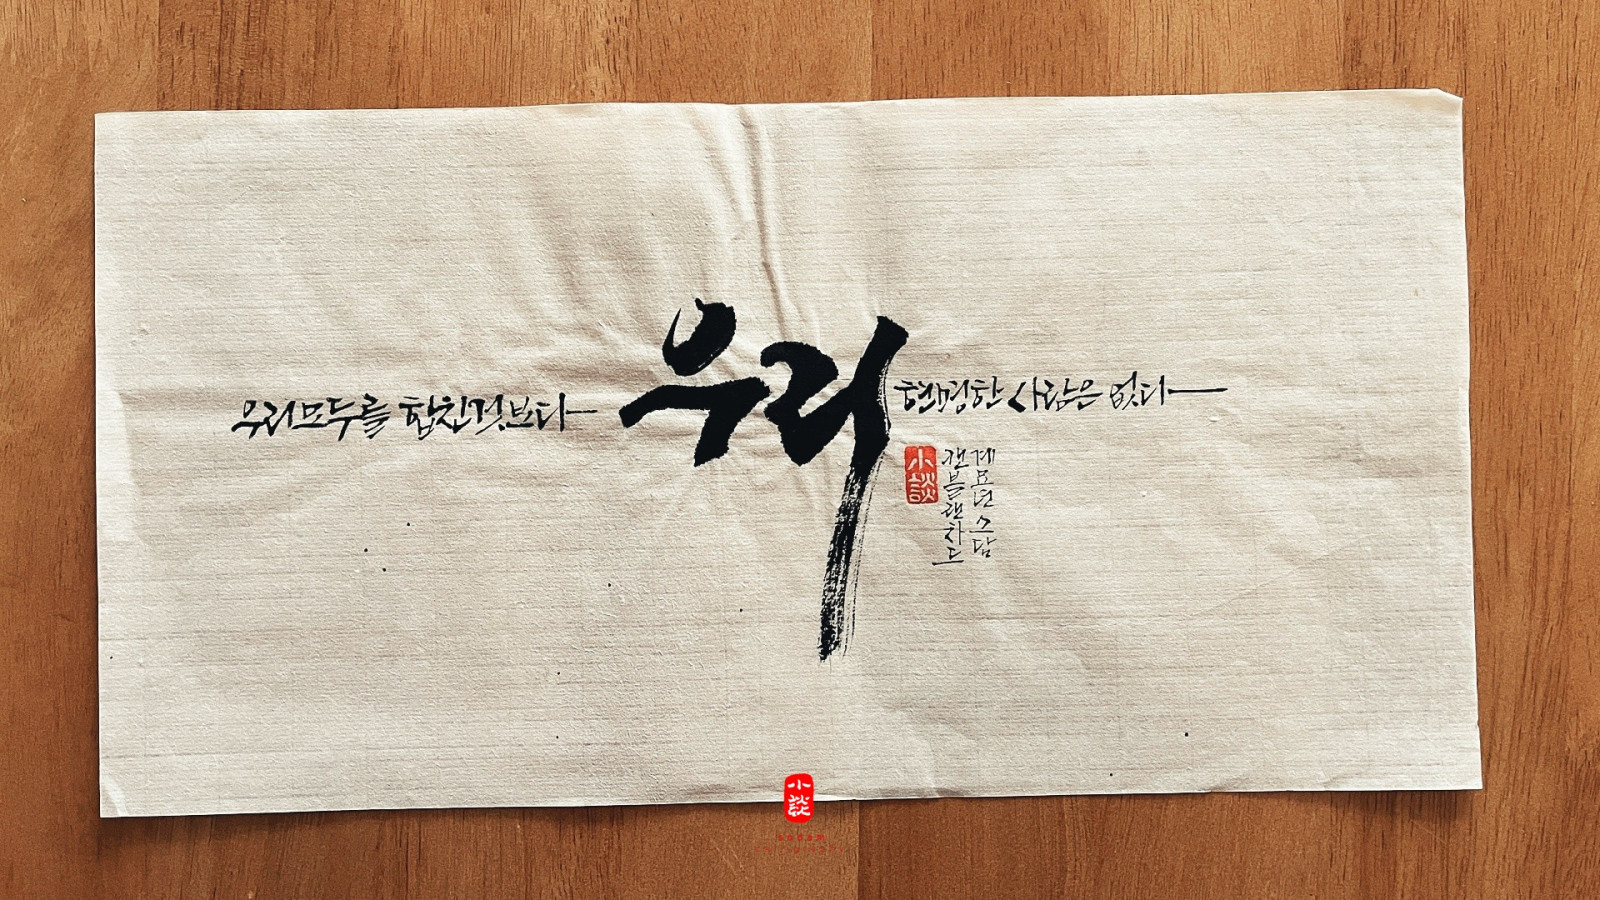 우리모두를 합친것보다
우리
현명한 사람은 없다
小談
켄블랜차드
계묘년 스담
小談
sodam
calligraphy